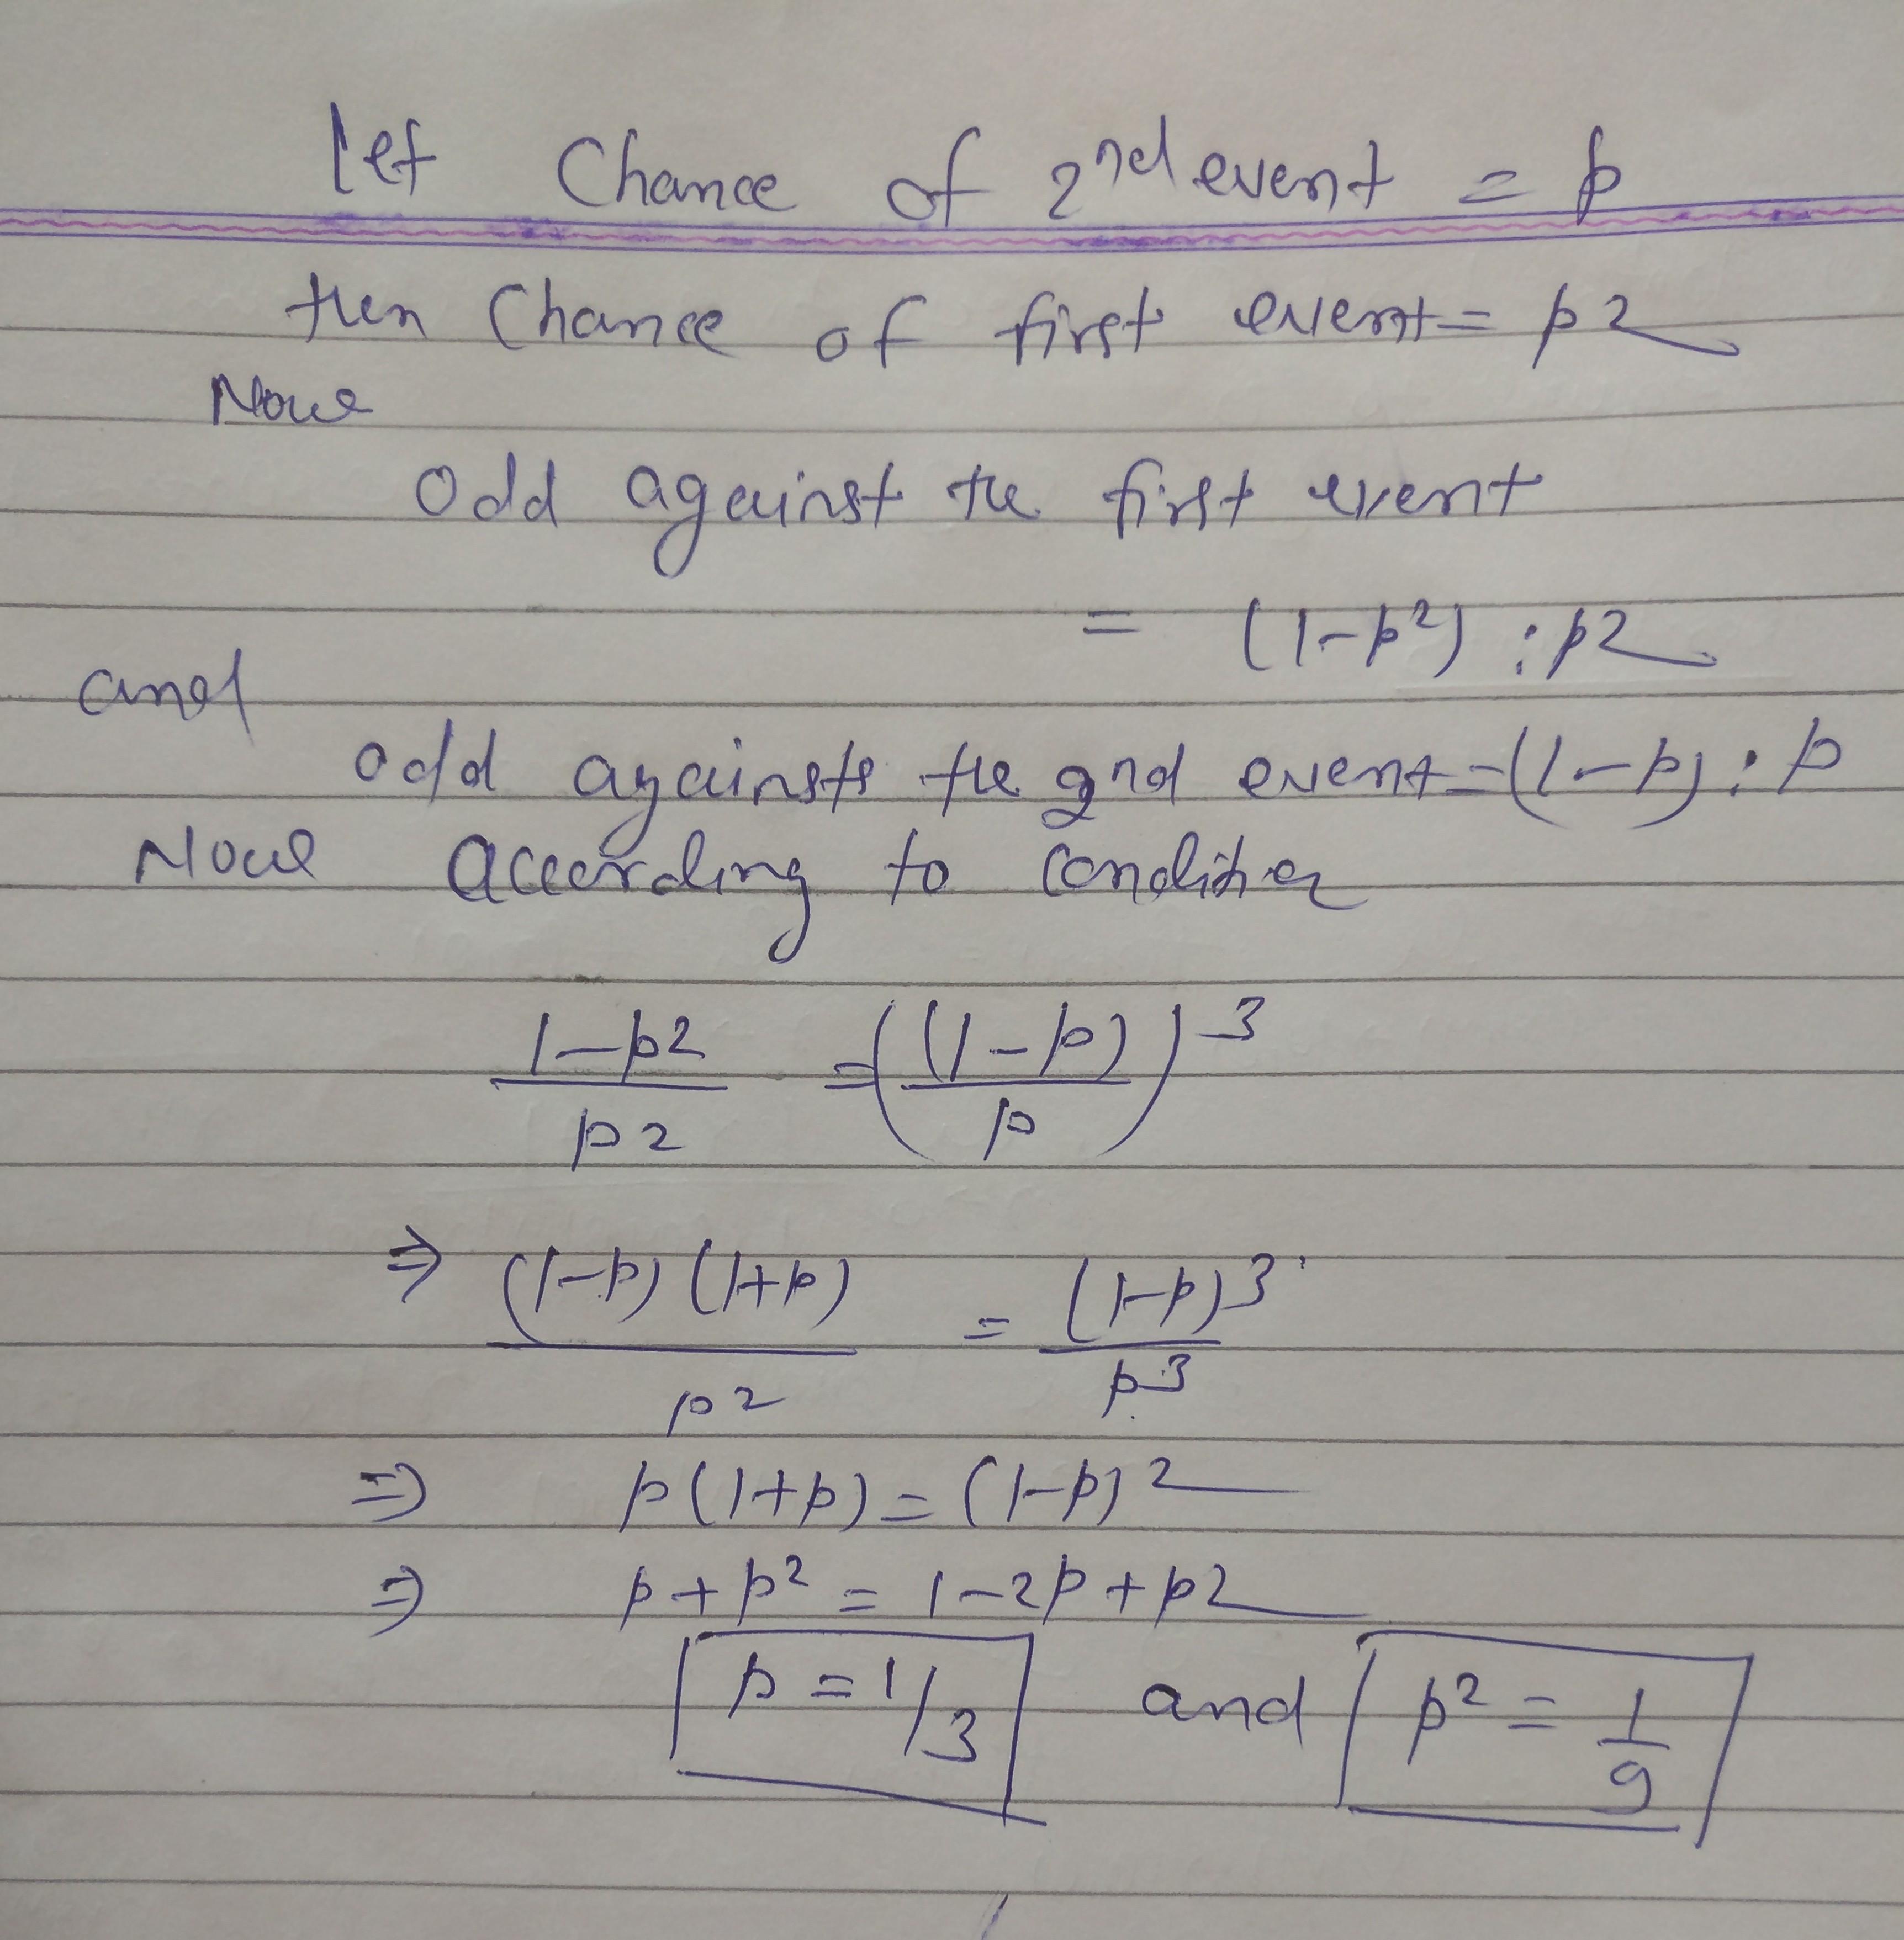 let Chance of 2nd event = p
then Chance of first event = p2
Now
Odd against the first event
= (1-p²) : p2
and
odd againsts the 2nd event = (1-p) : p
Now according to condition
1-p2 / p2 = ((1-p) / p)3
⇒ (1-p) (1+p) / p2 = (1-p)3 / p3
⇒ p(1+p) = (1-p)2
⇒ p + p² = 1 - 2p + p2
p = 1/3 and p² = 1/9